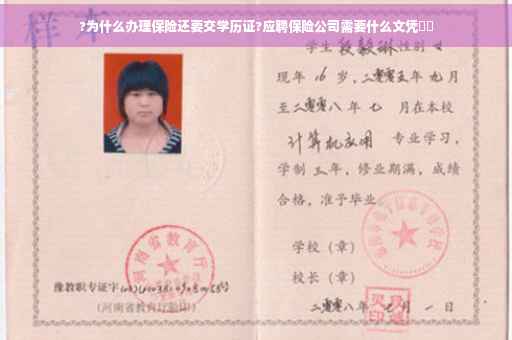 ?为什么办理保险还要交学历证?应聘保险公司需要什么文凭
样本
学生段毅琳性别女
现年16岁,二零零五年九月
至二零零八年七月在本校
计算机应用 专业学习,
学制三年,修业期满,成绩
合格,准予毕业
学校(章)
校长(章)
二零零八年 月一日
河南省教育厅
豫教职专证字
(河南省教育厅验印)